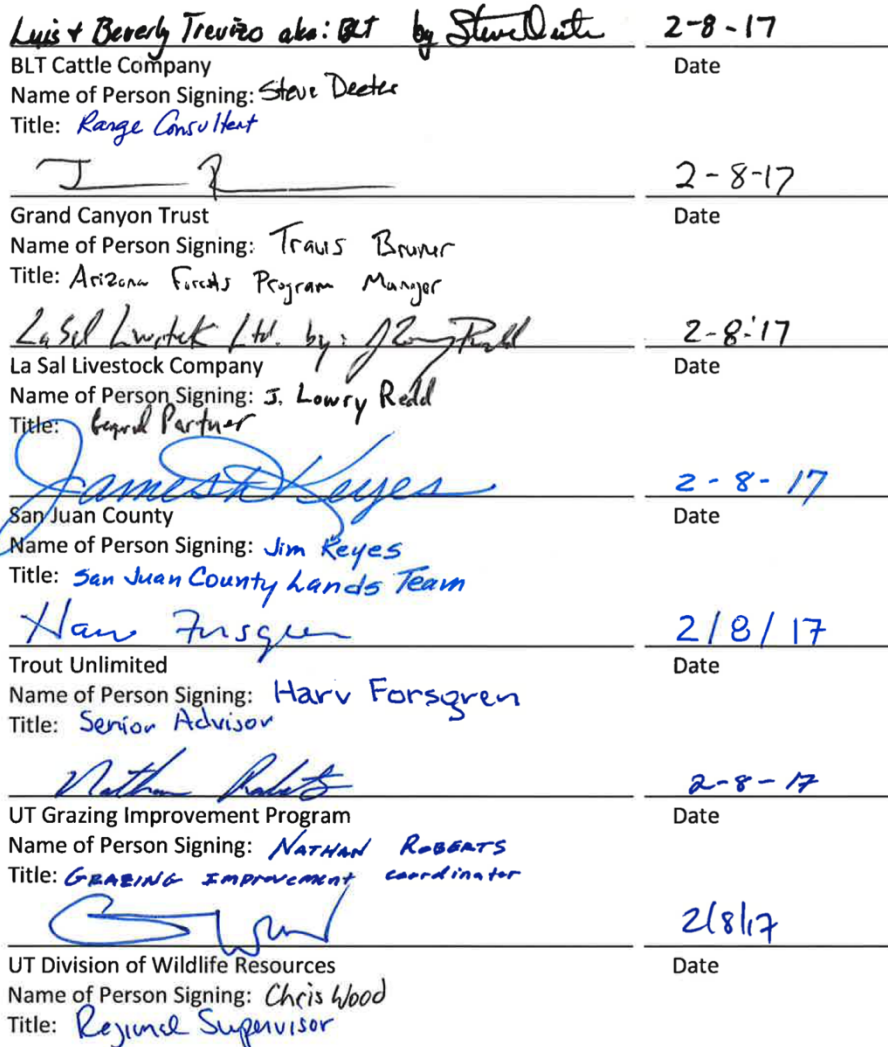 Luis + Beverly Trevizo aka: BLT by Steve Deeter 2-8-17
BLT Cattle Company Date
Name of Person Signing: Steve Deeter
Title: Range Consultent
2-8-17
Grand Canyon Trust Date
Name of Person Signing: Travis Bruner
Title: Arizona Forests Program Manager
La Sal Livestock Ltd. by: J Lowry Redd 2-8-17
La Sal Livestock Company Date
Name of Person Signing: J. Lowry Redd
Title: General Partner
James D Keyes 2-8-17
San Juan County Date
Name of Person Signing: Jim Keyes
Title: San Juan County Lands Team
Harv Forsgren 2/8/17
Trout Unlimited Date
Name of Person Signing: Harv Forsgren
Title: Senior Advisor
Nathan Roberts 2-8-17
UT Grazing Improvement Program Date
Name of Person Signing: NATHAN ROBERTS
Title: GRAZING IMPROVEMENT coordinator
2/8/17
UT Division of Wildlife Resources Date
Name of Person Signing: Chris Wood
Title: Regional Supervisor